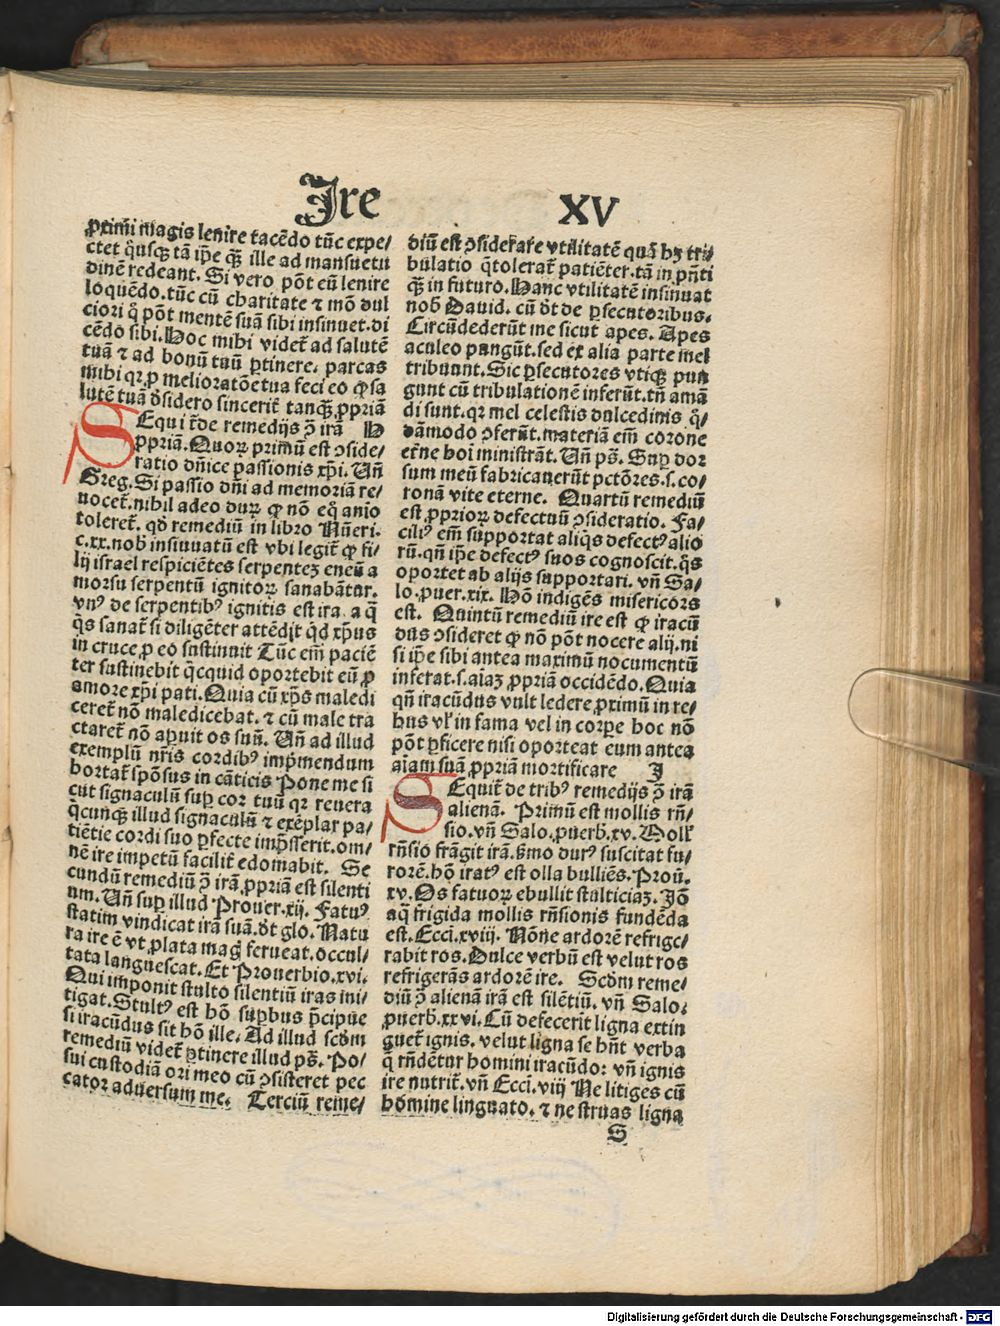 Ire XV
ꝓximi magis lenire tacēdo tūc expe/
ctet q̊usqꝫ tā ip̄e qꝫ ille ad mansuetu
dinē redeant. Si vero pōt eū lenire
loquēdo. tūc cū charitate ⁊ mō dul
ciori q̊ pōt mentē suā sibi insinuet. di
cēdo sibi. Hoc mihi videt᷑ ad salutē
tuā ⁊ ad bonū tuū ꝑtinere. parcas
mihi qꝛ ꝓ melioratōe tua feci eo ꝙ sa
lutē tuā d̓sidero sincerit᷑ tanqꝫ ꝓpriā
SEquit᷑ de remedijs ↄ̄ irā H
ꝓpriā. Quoꝝ primū est ↄside/
ratio dn̄ice passionis xp̄i. Vn̄
Greg. Si passio dn̄i ad memoriā re/
uocet᷑. nihil adeo duꝝ ꝙ nō eq̊ anio
toleret᷑. qd̓ remediū in libro Nūeri.
c.xx. nob̓ insinuatū est vbi legit᷑ ꝙ fi/
lij israel respiciētes serpenteꝫ eneū a
morsu serpentū ignitoꝝ sanabātur.
vnꝰ de serpentibꝰ ignitis est ira. a q̄
q̊s sanat᷑ si diligēter attēdit q̊d xp̄us
in cruce ꝓ eo sustinuit Tūc em̄ paciē
ter sustinebit q̊cquid oportebit eū ꝓ
amore xp̄i pati. Quia cū xp̄s maledi
ceret᷑ nō maledicebat. ⁊ cū male tra
ctaret᷑ nō aꝑuit os suū. Vn̄ ad illud
exemplū nr̄is cordibꝰ imp̄mendum
hortat᷑ spōsus in cāticis Pone me si
cut signaculū suꝑ cor tuū qꝛ reuera
q̊cunqꝫ illud signaculū ⁊ exēplar pa/
tiētie cordi suo ꝑfecte imp̄sserit. om/
nē ire impetū facilit᷑ edomabit. Se
cundū remediū ↄ̄ irā ꝓpriā est silenti
um. Vn̄ suꝑ illud Prouer.xij. Fatuꝰ
statim vindicat irā suā. dt̓ glo. Natu
ra ire ē vt ꝓlata magꝭ ferueat. occul/
tata languescat. Et Prouerbio.xvi.
Qui imponit stulto silentiū iras mi/
tigat. Stultꝰ est hō suꝑbus p̄cipue
si iracūdus sit hō ille. Ad illud scd̓m
remediū videt᷑ ꝑtinere illud ps̄. Po/
sui custodiā ori meo cū ↄsisteret pec
cator aduersum me. Terciū reme/
diū est ↄsiderare vtilitatē quā hꝫ tri/
bulatio q̄ tolerat᷑ patiēter. tā in pn̄ti
qꝫ in futuro. Hanc vtilitatē insinuat
nob̓ Dauid. cū dt̓ de ꝑsecutoribus.
Circūdederūt me sicut apes. Apes
aculeo pungūt. sed ex alia parte mel
tribuunt. Sic ꝑsecutores vtiqꝫ pun
gunt cū tribulationē inferūt. tn̄ amā
di sunt. qꝛ mel celestis dulcedinis q̊/
dāmodo ↄferūt. materiā em̄ corone
et̓ne hoi ministrāt. Vn̄ ps̄. Suꝑ dor
sum meū fabricauerūt pctōres .s. co/
ronā vite eterne. Quartū remediū
est ꝓprioꝝ defectuū ↄsideratio. Fa/
ciliꝰ em̄ supportat aliq̊s defectꝰ alio
rū. qn̄ ip̄e defectꝰ suos cognoscit. q̊s
oportet ab alijs supportari. vn̄ Sa/
lo.ꝓuer.xix. Hō indigēs misericors
est. Quintū remediū ire est ꝙ iracū
dus ↄsideret ꝙ nō pōt nocere alij. ni
si ip̄e sibi antea maximū nocumentū
inferat. s. aīaꝫ ꝓpriā occidēdo. Quia
qn̄ iracūdus vult ledere ꝓximū in re/
bus vl̓ in fama vel in corꝑe hoc nō
pōt ꝑficere nisi oporteat eum antea
aīam suā ꝓpriā mortificare J
SEquit᷑ de tribꝰ remedijs ↄ̄ irā
alienā. Primū est mollis rn̄/
sio. vn̄ Salo.ꝓuerb.xv. Moll̓
rn̄sio frāgit irā. s̓mo durꝰ suscitat fu/
rorē. hō iratꝰ est olla bulliēs. Proū.
xv. Os fatuoꝝ ebullit stulticiaꝫ. Jō
aq̄ frigida mollis rn̄sionis fundēda
est. Ecci.xviij. Nōne ardorē refrige/
rabit ros. Dulce verbū est velut ros
refrigerās ardorē ire. Scd̓m reme/
diū ↄ̄ alienā irā est silētiū. vn̄ Salo.
ꝓuerb.xxvi. Cū defecerit ligna extin
guet᷑ ignis. velut ligna se hn̄t verba
q̄ rn̄dētur homini iracūdo: vn̄ ignis
ire nutrit᷑. vn̄ Ecci.viij Ne litiges cū
homine linguato. ⁊ ne struas ligna
S
Digitalisierung gefördert durch die Deutsche Forschungsgemeinschaft - DFG